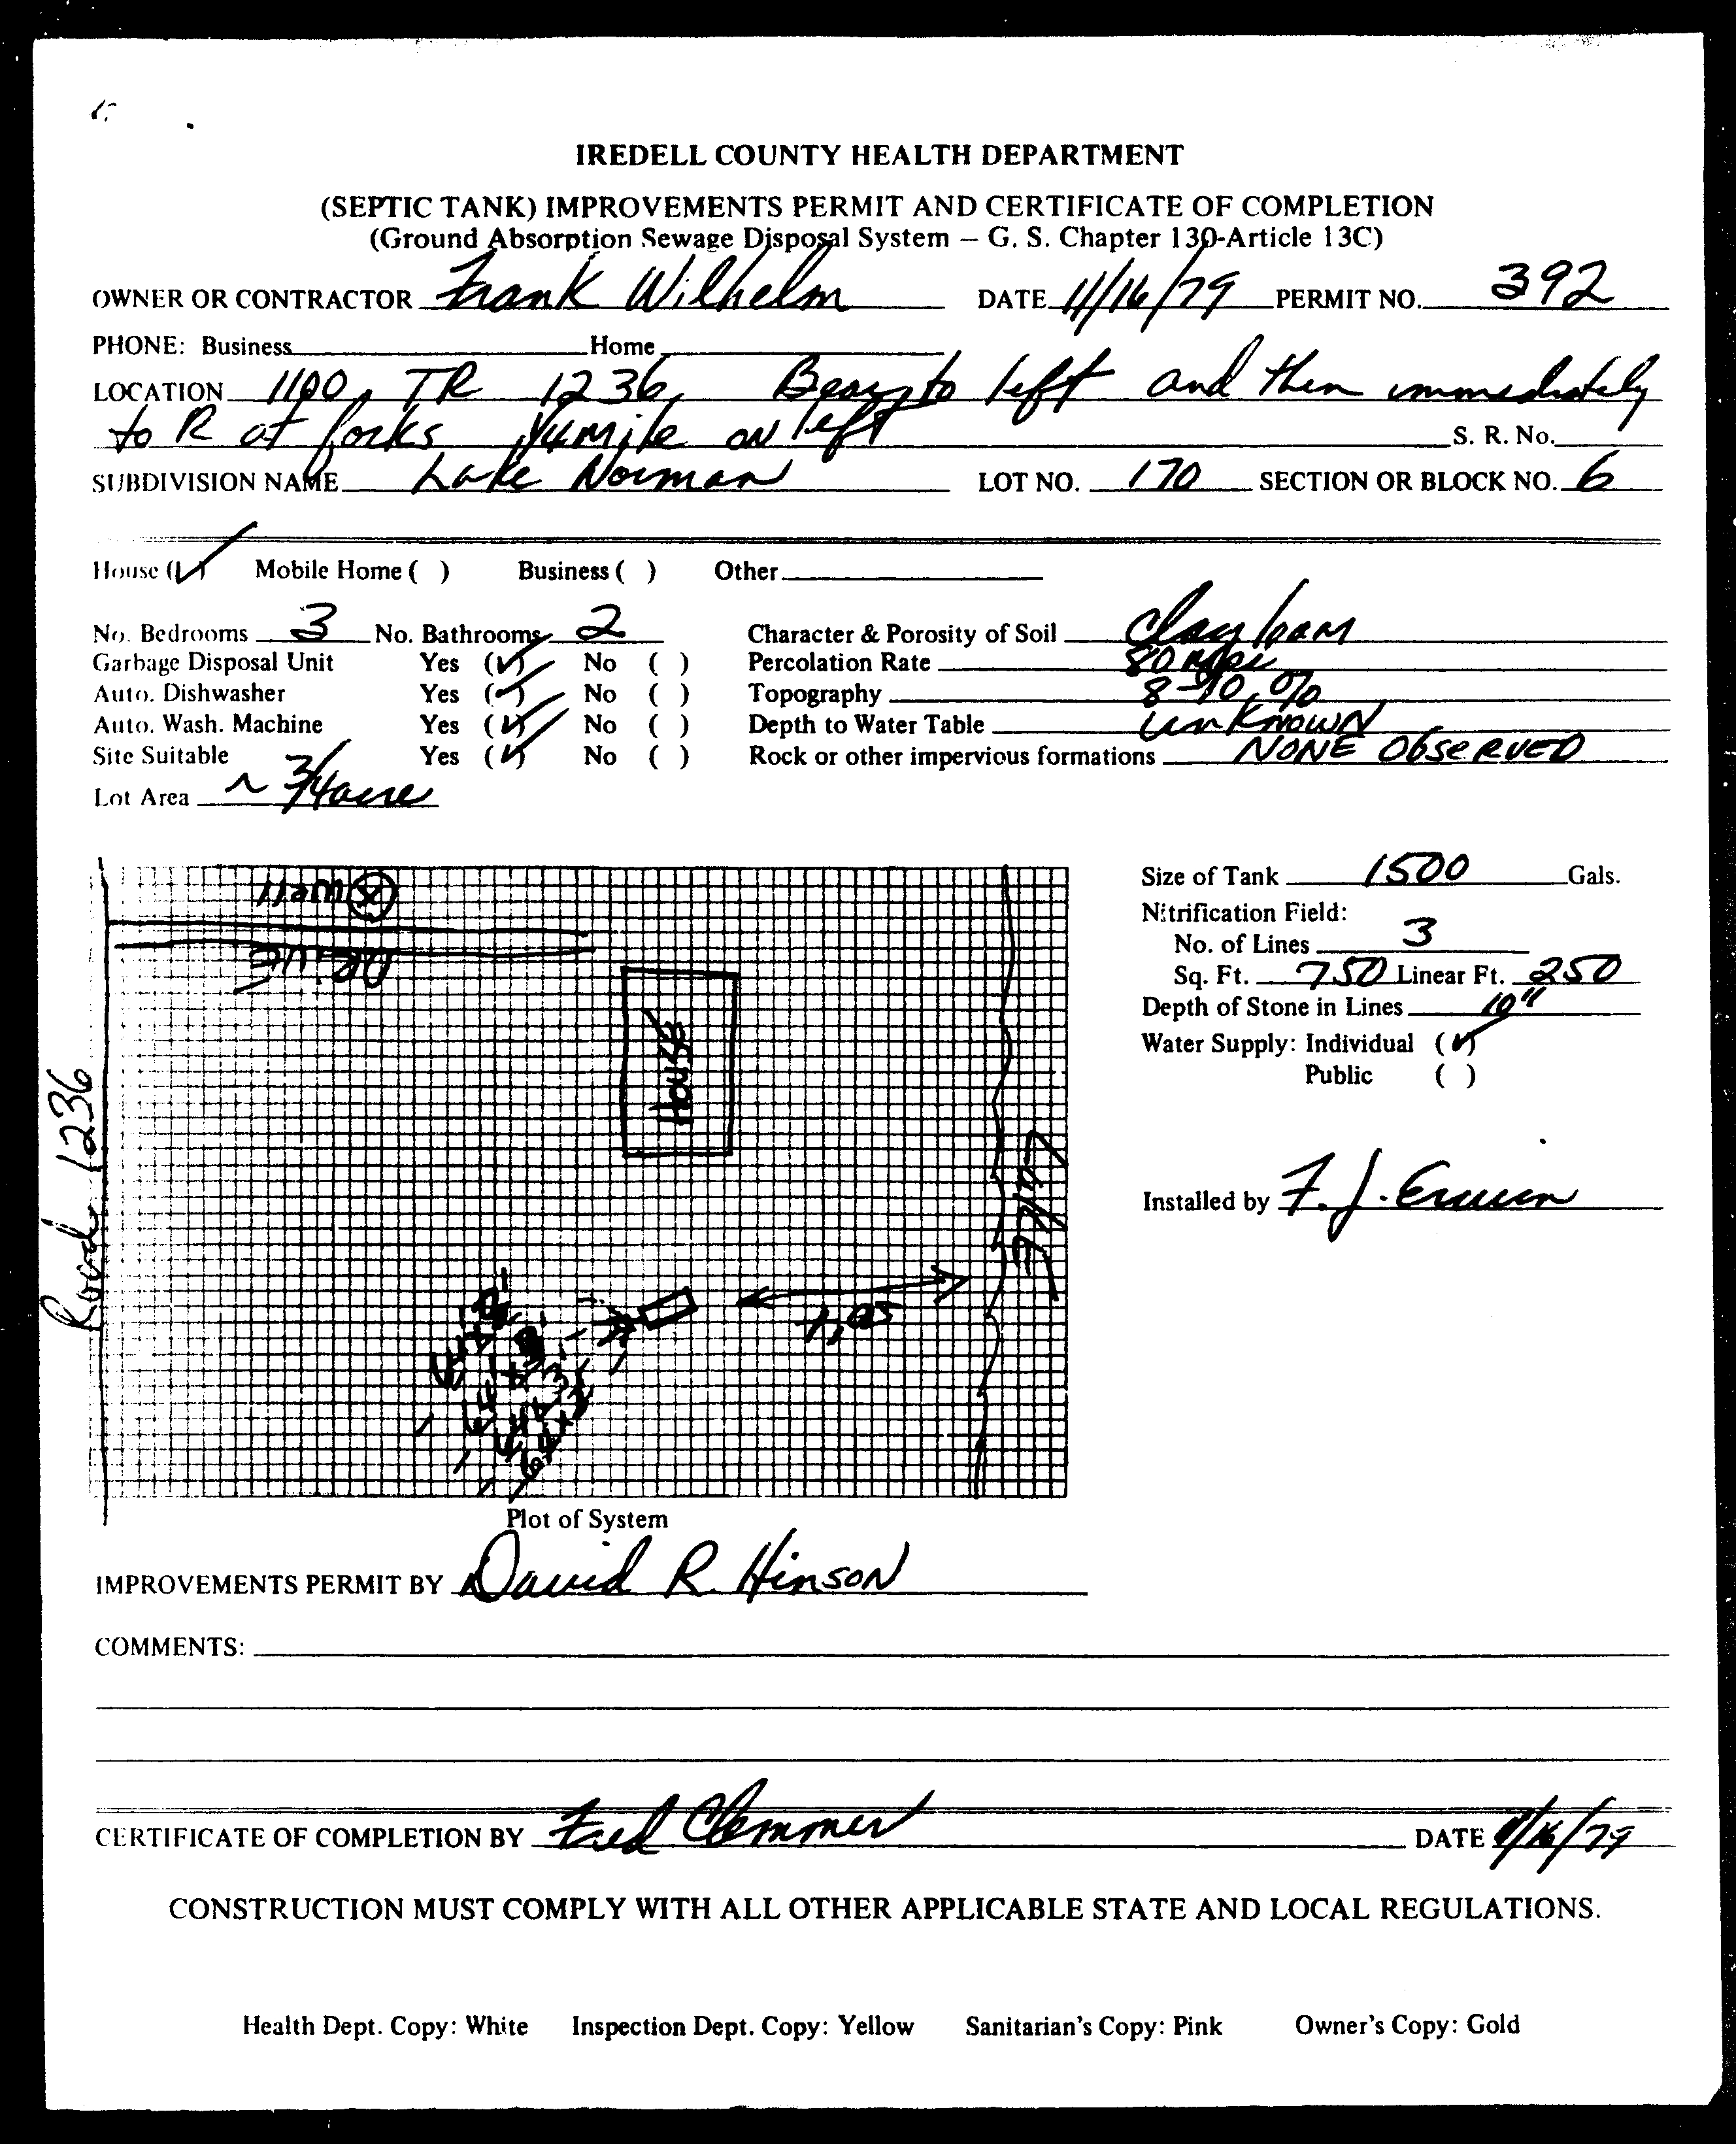 IREDELL COUNTY HEALTH DEPARTMENT
(SEPTIC TANK) IMPROVEMENTS PERMIT AND CERTIFICATE OF COMPLETION
(Ground Absorption Sewage Disposal System – G. S. Chapter 130-Article 13C)
OWNER OR CONTRACTOR Frank Wilhelm DATE 11/16/79 PERMIT NO. 392
PHONE: Business Home
LOCATION 1100, TR 1236, Bear to left and then immediately
to R at forks 1/4 mile on left S. R. No.
SUBDIVISION NAME Lake Norman LOT NO. 170 SECTION OR BLOCK NO. 6
House (✓) Mobile Home ( ) Business ( ) Other
No. Bedrooms 3 No. Bathrooms 2 Character & Porosity of Soil Clay loam
Garbage Disposal Unit Yes (✓) No ( ) Percolation Rate 80 mpi
Auto. Dishwasher Yes (✓) No ( ) Topography 8-10%
Auto. Wash. Machine Yes (✓) No ( ) Depth to Water Table unknown
Site Suitable Yes (✓) No ( ) Rock or other impervious formations NONE ObSERVED
Lot Area ~ 3/4 acre
Well
DRIVE
House
Road 1236
Lake
Size of Tank 1500 Gals.
Nitrification Field:
No. of Lines 3
Sq. Ft. 750 Linear Ft. 250
Depth of Stone in Lines 10"
Water Supply: Individual (✓)
Public ( )
Installed by F. J.
Plot of System
IMPROVEMENTS PERMIT BY David R. Hinson
COMMENTS:
CERTIFICATE OF COMPLETION BY Fred Clemmer DATE
CONSTRUCTION MUST COMPLY WITH ALL OTHER APPLICABLE STATE AND LOCAL REGULATIONS.
Health Dept. Copy: White Inspection Dept. Copy: Yellow Sanitarian's Copy: Pink Owner's Copy: Gold